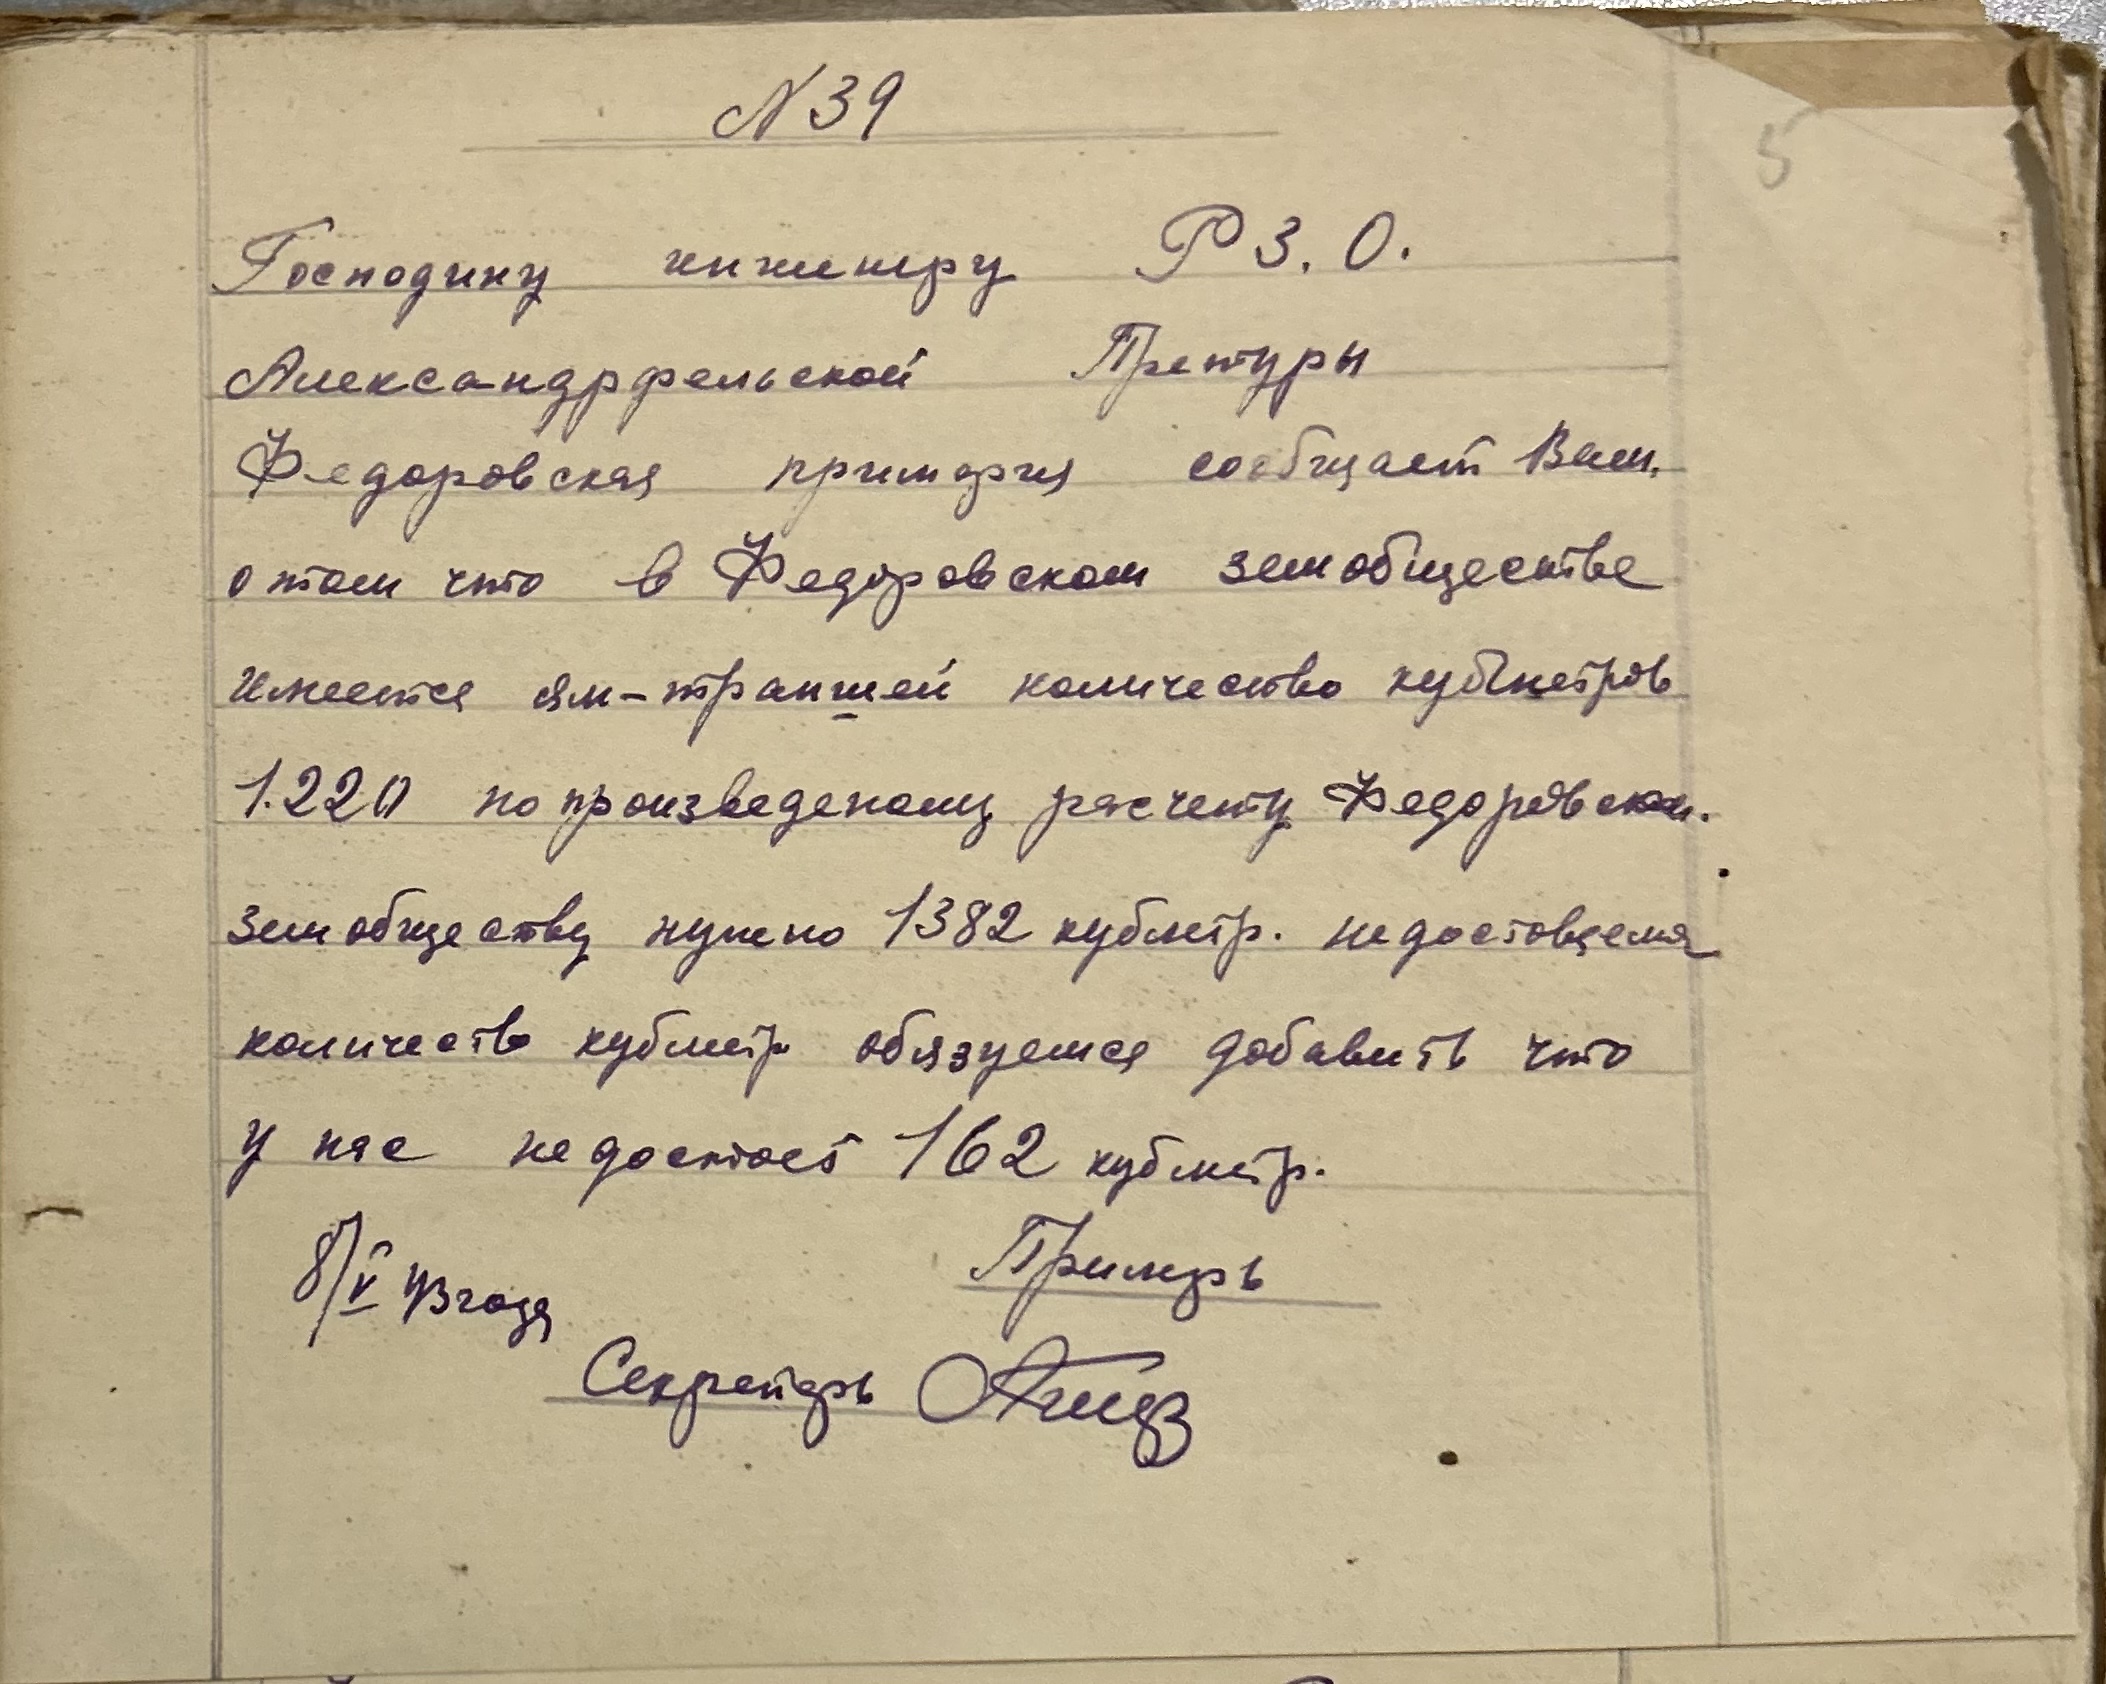 N 39
5
Господину инженеру Р З. О.
Александрфельской Претуры
Федоровская примария сообщает Вам.
о том что в Федоровском земобществе
имеется ям-траншей количество кубметров
1.220 по произведеному расчету Федоровском.
земобществу нужно 1382 кубметр. недостовцемя
количество кубметр обязуемся добавить что
у нас недостает 162 кубметр.
8/V 43 года Примарь
Секретарь